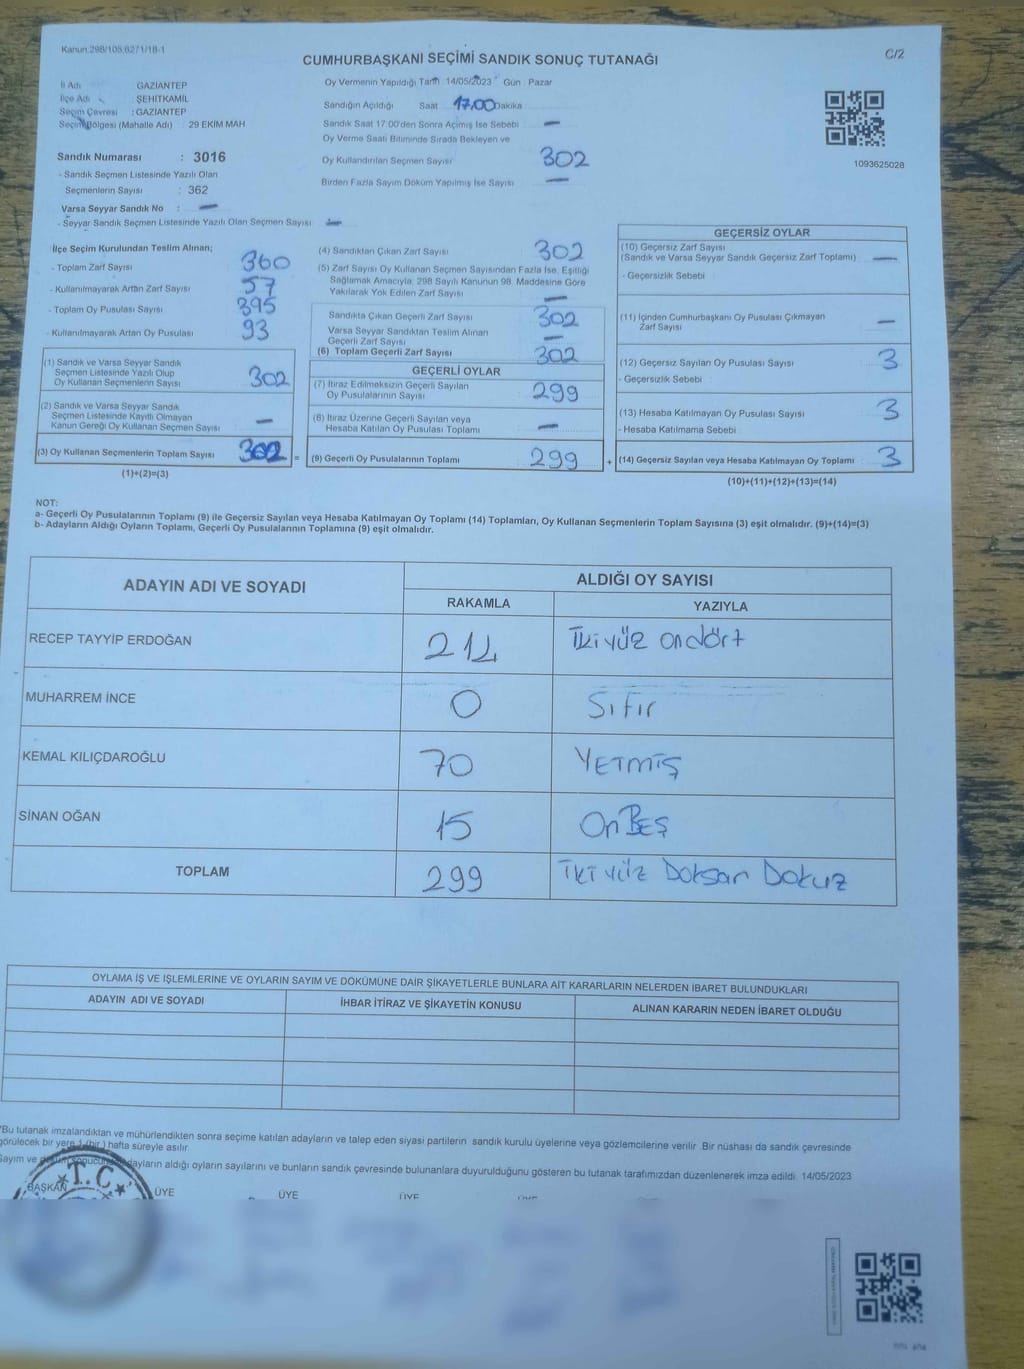 Kanun.298/105,6271/18-1
C/2
CUMHURBAŞKANI SEÇİMİ SANDIK SONUÇ TUTANAĞI
İl Adı GAZİANTEP
İlçe Adı ŞEHİTKAMİL
Seçim Çevresi : GAZİANTEP
Seçim Bölgesi (Mahalle Adı) : 29 EKİM MAH
Sandık Numarası : 3016
- Sandık Seçmen Listesinde Yazılı Olan
Seçmenlerin Sayısı : 362
Varsa Seyyar Sandık No : —
- Seyyar Sandık Seçmen Listesinde Yazılı Olan Seçmen Sayısı : —
Oy Vermenin Yapıldığı Tarih 14/05/2023 Gün : Pazar
Sandığın Açıldığı Saat 17.00 Dakika
Sandık Saat 17:00'den Sonra Açımış İse Sebebi —
Oy Verme Saati Bitiminde Sırada Bekleyen ve
Oy Kullandırılan Seçmen Sayısı 302
Birden Fazla Sayım Döküm Yapılmış İse Sayısı —
1093625028
İlçe Seçim Kurulundan Teslim Alınan;
- Toplam Zarf Sayısı 360
- Kullanılmayarak Artan Zarf Sayısı 57
- Toplam Oy Pusulası Sayısı 395
- Kullanılmayarak Artan Oy Pusulası 93
(1) Sandık ve Varsa Seyyar Sandık
Seçmen Listesinde Yazılı Olup
Oy Kullanan Seçmenlerin Sayısı 302
(2) Sandık ve Varsa Seyyar Sandık
Seçmen Listesinde Kayıtlı Olmayan
Kanun Gereği Oy Kullanan Seçmen Sayısı —
(3) Oy Kullanan Seçmenlerin Toplam Sayısı 302 =
(1)+(2)=(3)
(4) Sandıktan Çıkan Zarf Sayısı 302
(5) Zarf Sayısı Oy Kullanan Seçmen Sayısından Fazla İse, Eşitliği
Sağlamak Amacıyla, 298 Sayılı Kanunun 98. Maddesine Göre
Yakılarak Yok Edilen Zarf Sayısı —
Sandıkta Çıkan Geçerli Zarf Sayısı 302
Varsa Seyyar Sandıktan Teslim Alınan
Geçerli Zarf Sayısı —
(6) Toplam Geçerli Zarf Sayısı 302
GEÇERLİ OYLAR
(7) İtiraz Edilmeksizin Geçerli Sayılan
Oy Pusulalarının Sayısı 299
(8) İtiraz Üzerine Geçerli Sayılan veya
Hesaba Katılan Oy Pusulası Toplamı —
(9) Geçerli Oy Pusulalarının Toplamı 299 +
GEÇERSİZ OYLAR
(10) Geçersiz Zarf Sayısı
(Sandık ve Varsa Seyyar Sandık Geçersiz Zarf Toplamı) —
- Geçersizlik Sebebi
(11) İçinden Cumhurbaşkanı Oy Pusulası Çıkmayan
Zarf Sayısı —
(12) Geçersiz Sayılan Oy Pusulası Sayısı 3
- Geçersizlik Sebebi
(13) Hesaba Katılmayan Oy Pusulası Sayısı 3
- Hesaba Katılmama Sebebi
(14) Geçersiz Sayılan veya Hesaba Katılmayan Oy Toplamı 3
(10)+(11)+(12)+(13)=(14)
NOT:
a- Geçerli Oy Pusulalarının Toplamı (9) ile Geçersiz Sayılan veya Hesaba Katılmayan Oy Toplamı (14) Toplamları, Oy Kullanan Seçmenlerin Toplam Sayısına (3) eşit olmalıdır. (9)+(14)=(3)
b- Adayların Aldığı Oyların Toplamı, Geçerli Oy Pusulalarının Toplamına (9) eşit olmalıdır.
ADAYIN ADI VE SOYADI ALDIĞI OY SAYISI
RAKAMLA YAZIYLA
RECEP TAYYİP ERDOĞAN 214 İki yüz ondört
MUHARREM İNCE 0 Sıfır
KEMAL KILIÇDAROĞLU 70 YETMİŞ
SİNAN OĞAN 15 OnBEŞ
TOPLAM 299 İki yüz Doksan Dokuz
OYLAMA İŞ VE İŞLEMLERİNE VE OYLARIN SAYIM VE DÖKÜMÜNE DAİR ŞİKAYETLERLE BUNLARA AİT KARARLARIN NELERDEN İBARET BULUNDUKLARI
ADAYIN ADI VE SOYADI İHBAR İTİRAZ VE ŞİKAYETİN KONUSU ALINAN KARARIN NEDEN İBARET OLDUĞU
*Bu tutanak imzalandıktan ve mühürlendikten sonra seçime katılan adayların ve talep eden siyasi partilerin sandık kurulu üyelerine veya gözlemcilerine verilir. Bir nüshası da sandık çevresinde
görülecek bir yere 1 (bir ) hafta süreyle asılır.
Sayım ve döküm sonucu adayların aldığı oyların sayılarını ve bunların sandık çevresinde bulunanlara duyurulduğunu gösteren bu tutanak tarafımızdan düzenlenerek imza edildi. 14/05/2023
T.C.
BAŞKAN ÜYE ÜYE ÜYE ÜYE